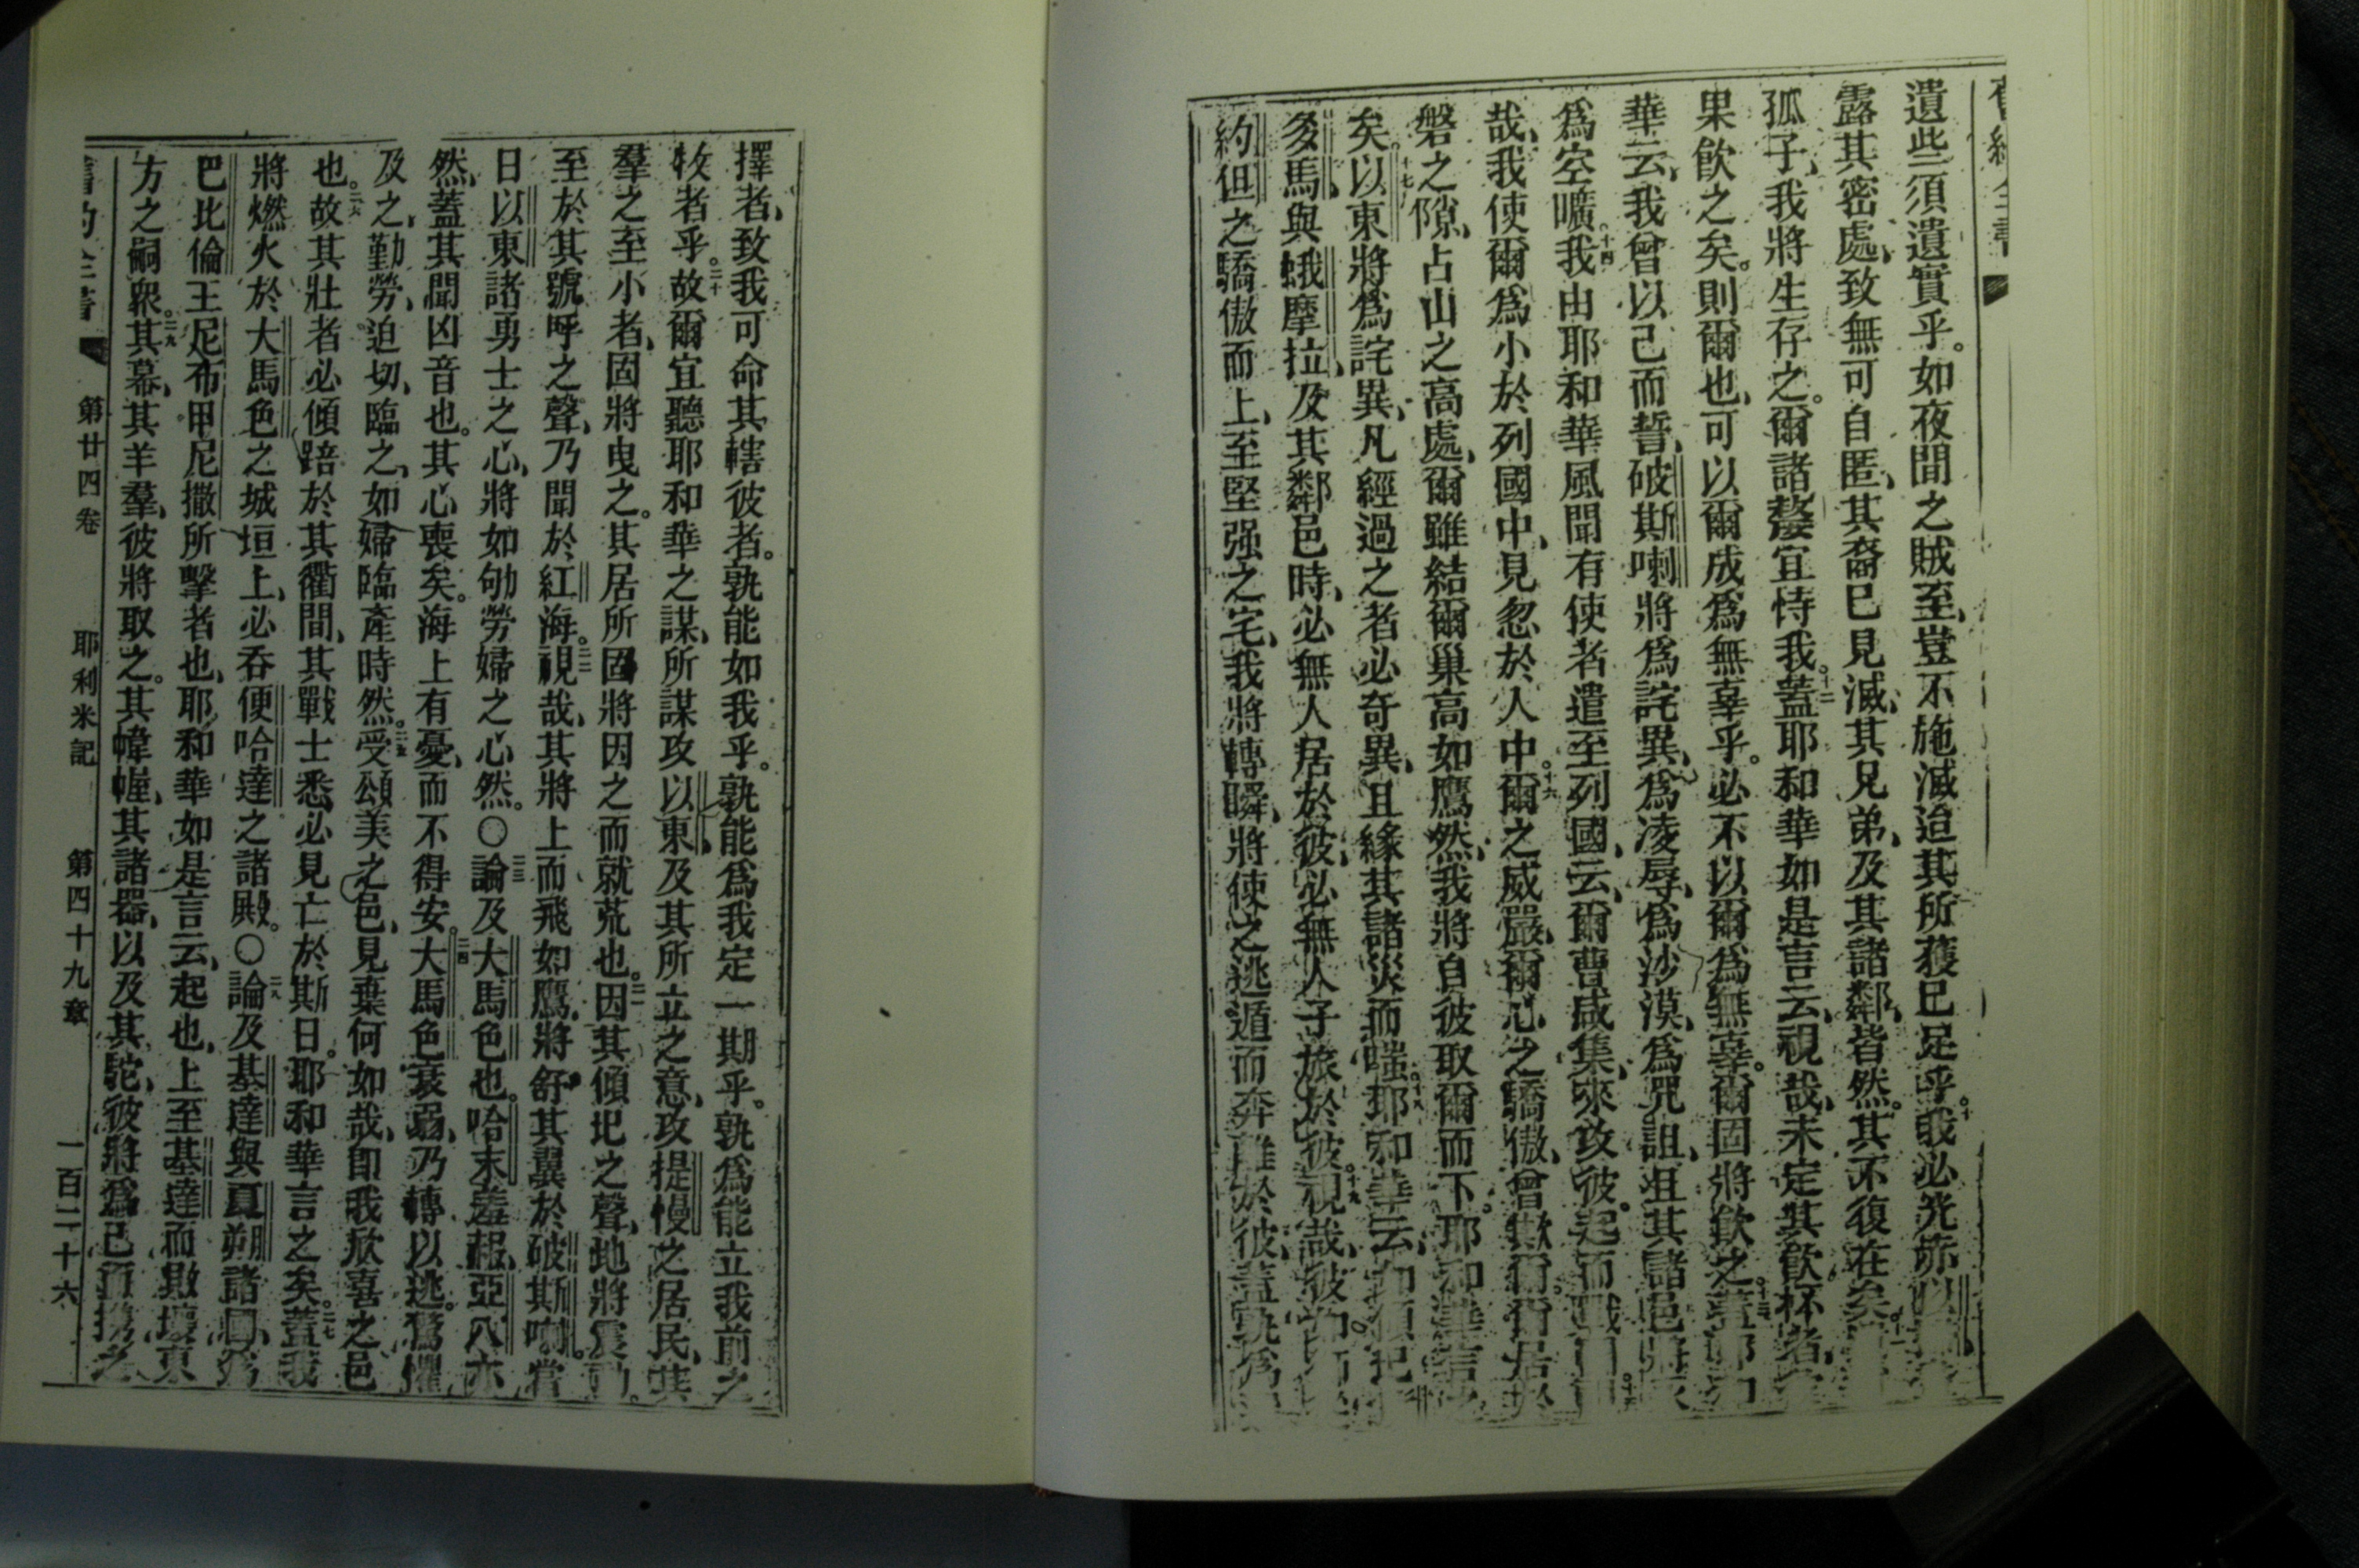 遺些須遺實乎。如夜間之賊至、豈不施滅迨其所獲已足乎。十我必先
露其密處、致無可自匿、其裔已見滅、其兄弟、及其諸鄰、皆然。其不復在矣。十一
孤子、我將生存之。爾諸嫠宜恃我。十二蓋耶和華如是言云、視哉、未定其飲杯者、
果飲之矣。則爾也、可以爾成爲無辜乎。必不以爾爲無辜。爾固將飲之。十三蓋耶和
華云、我曾以己而誓、破斯喇將爲詫異、爲凌辱、爲沙漠、爲咒詛、且其諸邑將
爲空曠。十四我由耶和華風聞有使者遣至列國、云、爾曹咸集、來攻彼。起而戰
哉、我使爾爲小於列國中、見忽於人中。十六爾之威嚴、爾心之驕傲、曾欺爾。爾居於
磐之隙、占山之高處、爾雖結爾巢高如鷹然、我將自彼取爾而下。耶和華言
矣。十七以東將爲詫異、凡經過之者必奇異、且緣其諸災而嗤。十八耶和華云、如傾圮
多馬與蛾摩拉、及其鄰邑時、必無人居於彼、必無人子旅於彼。十九視哉、彼如
約但之驕傲而上、至堅强之宅、我將轉瞬、將使之逃遁而奔離於彼、蓋孰爲
擇者、致我可命其轄彼者。孰能如我乎。孰能爲我定一期乎。孰爲能立我前之
牧者乎。二十故爾宜聽耶和華之謀、所謀攻以東、及其所立之意、攻提慢之居民、其
羣之至小者、固將曳之。其居所固將因之而就荒也。二一因其傾圮之聲、地將震動。
至於其號呼之聲、乃聞於紅海。二二視哉、其將上而飛如鷹、將舒其翼於破斯喇。當
日以東諸勇士之心、將如劬勞婦之心然。〇二三論及大馬色也。哈末羞赧、亞八亦
然、蓋其聞凶音也。其心喪矣。海上有憂、而不得安。二四大馬色衰弱、乃轉以逃。驚懼
及之、勤勞、迫切、臨之、如婦臨產時然。二五受頌美之邑、見棄何如哉、卽我欣喜之邑
也。二六故其壯者必傾踣於其衢間、其戰士悉必見亡於斯日。耶和華言之矣。二七蓋我
將燃火於大馬色之城垣上、必吞便哈達之諸殿。〇二八論及基達與夏朔諸國、爲
巴比倫王尼布甲尼撒所擊者也、耶和華如是言云、起也、上至基達而敗壞東
方之嗣衆。二九其幕、其羊羣、彼將取之。其幃幄、其諸器、以及其駝、彼將爲己而攜之
舊約全書 第廿四卷 耶利米記 第四十九章 一百二十六